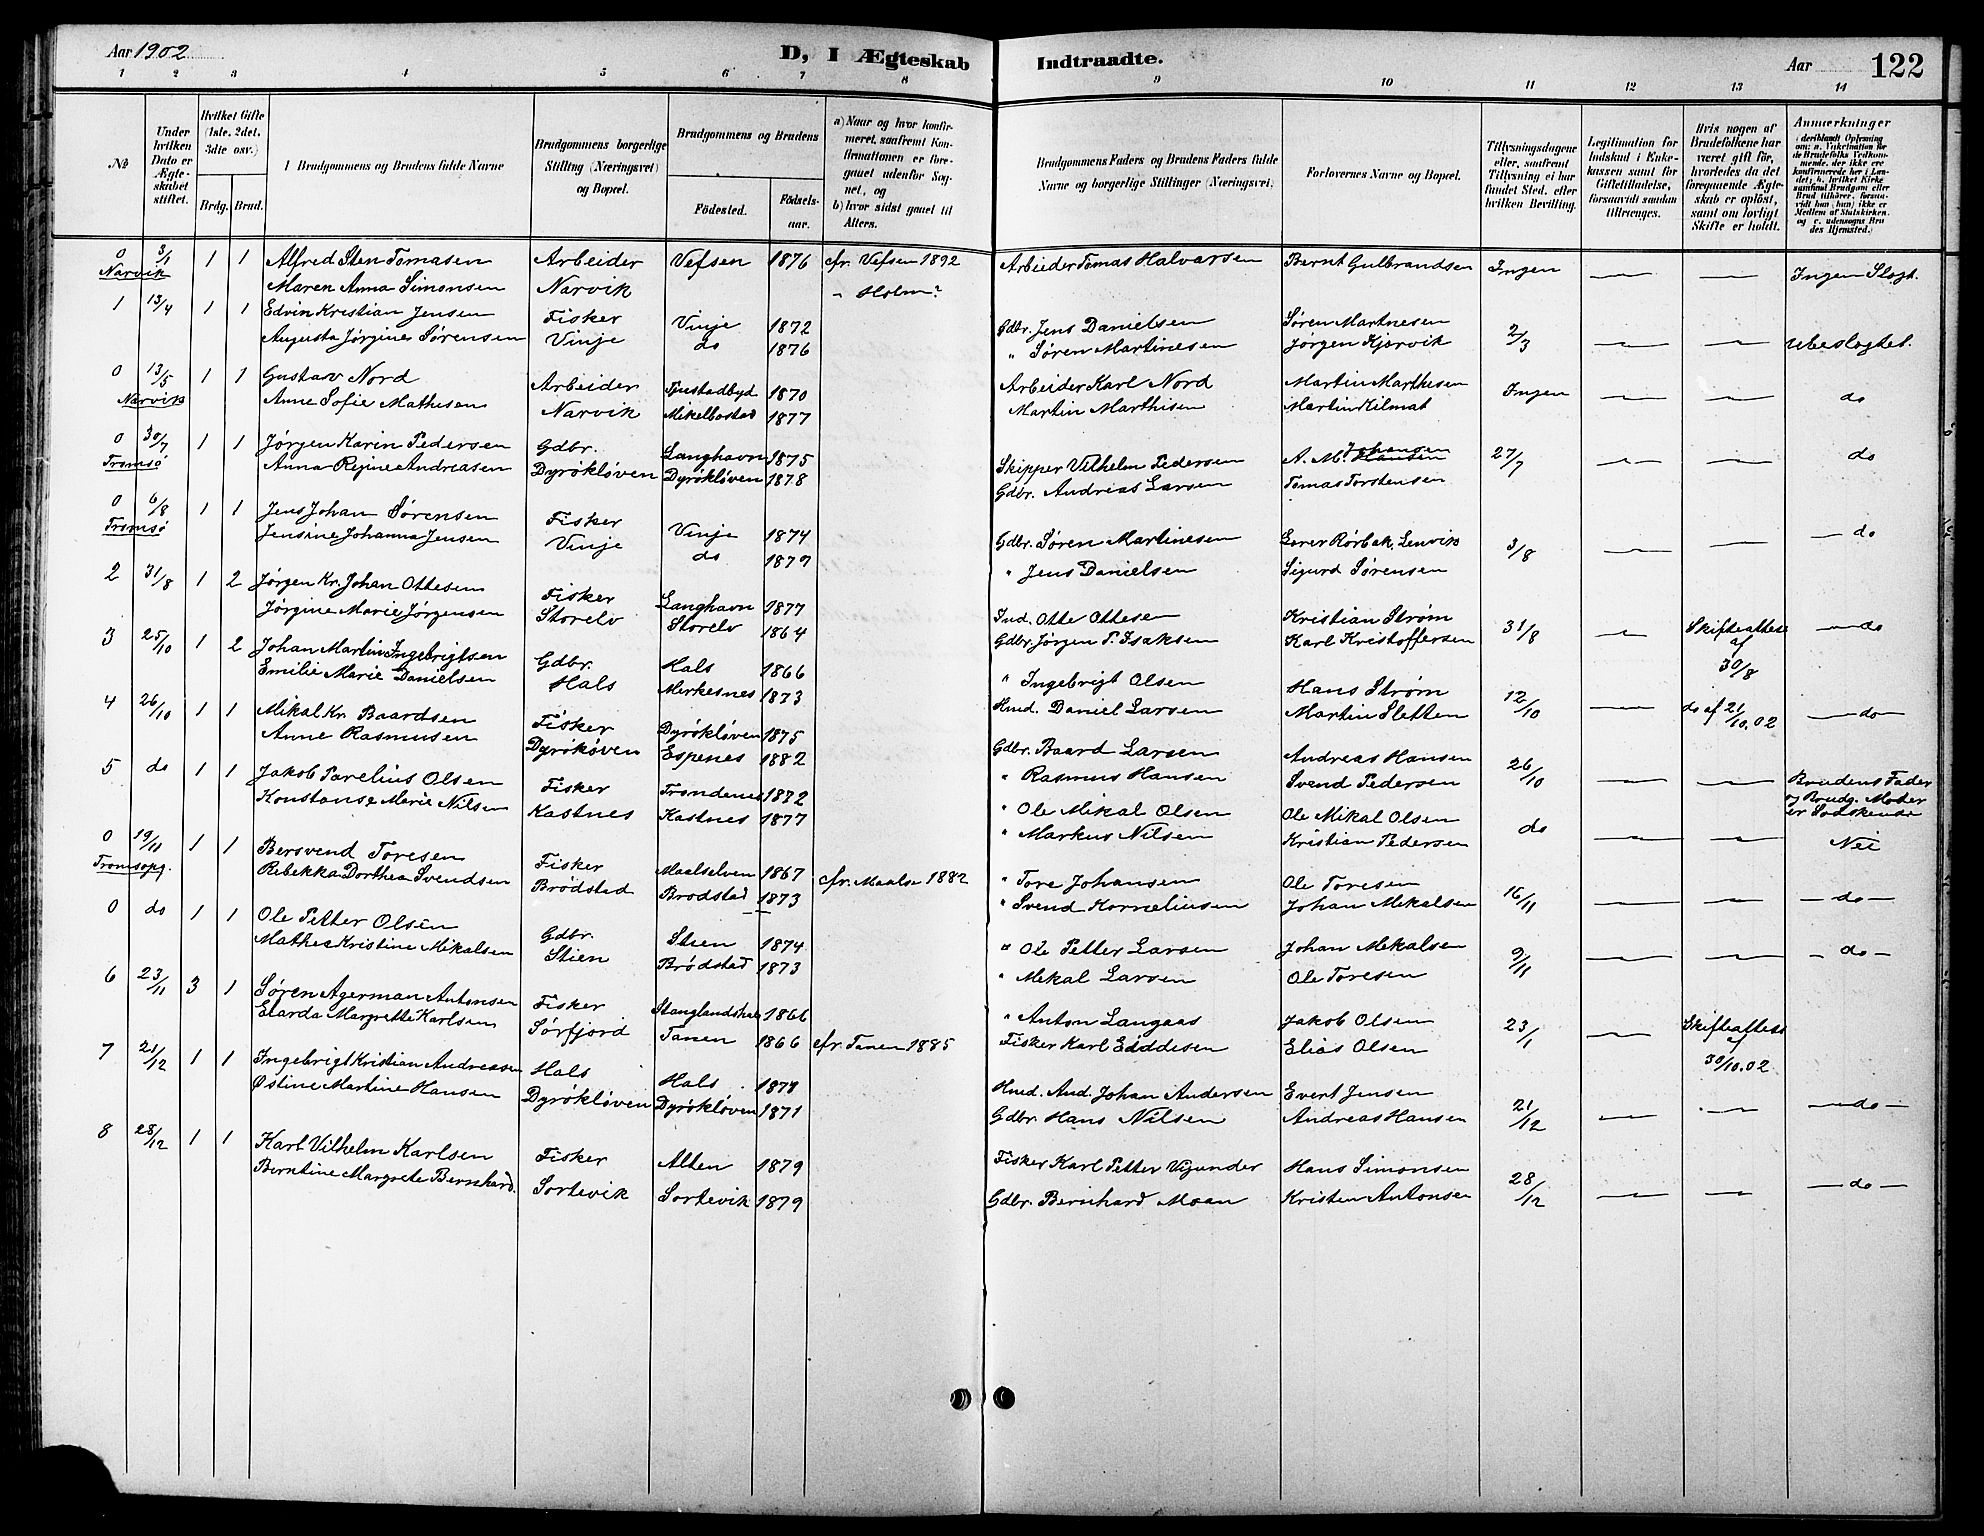 Aar 1902
D, I Ægteskab Indtraadte.
Aar
122
1 2 3 4 5 6 7 8 9 10 11 12 13 14
No
Under hvilken Dato er Ægteskabet stiftet.
Hvilket Gifte (1ste, 2det, 3die osv.)
Brdg. Brud.
Brudgommens og Brudens fulde Navne
Brudgommens borgerlige Stilling (Næringsvei) og Bopæl.
Brudgommens og Brudens
Födested.
Födselsaar.
a) Naar og hvor konfirmeret, saafremt Konfirmationen er foregaaet udenfor Sognet, og
b) hvor sidst gaaet til Alters.
Brudgommens Faders og Brudens Faders fulde Navne og borgerlige Stillinger (Næringsvei)
Forlovernes Navne og Bopæl.
Tillysningsdagene eller, saafremt Tillysning ei har fundet Sted, efter hvilken Bevilling.
Legitimation for Indskud i Enkekassen samt for Giftetilladelse, forsaavidt saadan tiltrænges.
Hvis nogen af Brudefolkene har været gift før, hvorledes da det foregaaende Ægteskab er opløst, samt om lovligt Skifte er holdt.
Anmærkninger
0 3/1 1 1 Alfred Sten Tomasen Arbeider Vefsen 1876 cfr. Vefsen 1892 Arbeider Tomas Halvarsen Bernt Gulbrandsen Ingen — — Ingen Slogt.
Narvik Maren Anna Simonsen Narvik " Holm?
1 13/4 1 1 Edvin Kristian Jensen Fisker Vinje 1872 Gdbr. Jens Danielsen Søren Martnesen 2/3 — — Ubeslogtet.
Augusta Jørgine Sørensen Vinje do 1876 " Søren Martinesen Jørgen Kjørvik
0 13/5 1 1 Gustav Nord Arbeider 1870 Arbeider Karl Nord Martin Marthesen Ingen — — do
Narvik Anne Sofie Mathisen Narvik Mikelbostad 1877 Martin Marthisen Martin Kilmat
0 30/7 1 1 Jørgen Karin Pedersen Gdbr. Langhavn 1875 Skipper Vilhelm Pedersen A. M. Johansen 27/7 — — do
Tromsö Anna Regine Andreasen Dyrökløven Dyrökløven 1878 Gdbr. Andreas Larsen Tomas Torstensen
0 6/8 1 1 Jens Johan Sørensen Fisker Vinje 1874 Gdbr. Søren Martinesen Rörbak, Lenvik 3/8 — — do
Tromsö Jensine Johanna Jensen Vinje do 1879 " Jens Danielsen Sigurd Sørensen
2 31/8 1 2 Jørgen Kr. Johan Ottesen Fisker Langhavn 1877 Ind. Otte Ottesen Kristian Strøm 31/8 — Skifteattest af 30/8 — do
Jørgine Marie Jørgensen Storelv Storelv 1864 Gdbr. Jørgen P. Isaksen Karl Kristoffersen
3 25/10 1 2 Johan Martin Ingebrigtsen Gdbr. Hals 1866 " Ingebrigt Olsen Hans Strøm 12/10 — do af 21/10.02 — do —
Emilie Marie Danielsen Hals Merkesnes 1873 Hmd. Daniel Larsen Martin Sletten
4 26/10 1 1 Mikal Kr. Baardsen Fisker Dyrökløven 1875 Gdbr. Baard Larsen Andreas Hansen 26/10 — —
Anne Rasmusen Dyrökøven Espenes 1882 " Rasmus Hansen Svend Pedersen
5 do 1 1 Jakob Parelius Olsen Fisker Trondenes 1872 " Ole Mikal Olsen Ole Mikal Olsen do — — Brudens Fader og Brudg. Moder er Sødskende
Konstanse Marie Nilsen Kastnes Kastnes 1877 " Markus Nilsen Kristian Pedersen
0 19/11 1 1 Bersvend Toresen Fisker Maalselven 1867 cfr. Maalse 1882 " Tore Johansen Ole Toresen 16/11 — — Nei
Tromsopg. Rebekka Dorthea Svendsen Brödstad Brodstad 1873 " Svend Kornelinsen Johan Mekalsen — do —
0 do 1 1 Ole Petter Olsen Gdbr. Stien 1874 " Ole Petter Larsen Johan Mekalsen 9/11 — — — do —
Mathea Kristine Mikalsen Stien Brödstad 1873 " Mekal Larsen Ole Toresen
6 23/11 3 1 Søren Agerman Antonsen Fisker Stanglandshal 1866 " Anton Langaas Jakob Olsen 23/1 — Skifteattest af 30/10.02
Elarda Margrette Karlsen Sørfjord Tanen 1866 cfr. Tanen 1885 Fisker Karl Eliddesen Elias Olsen
7 21/12 1 1 Ingebrigt Kristian Andreasen Hals Hals 1878 Hmd. And. Johan Andersen Evert Jensen 21/12 — — — do —
Østine Martine Hansen Dyrökløven Dyrökløven 1871 Gdbr. Hans Nilsen Andreas Hansen
8 28/12 1 1 Karl Vilhelm Karlsen Fisker Alten 1879 Fisker Karl Petter Vigunder Hans Simonsen 28/12 — — — do —
Berntine Margrete Bernhard. Sortevik Sortevik 1879 Gdbr. Bernhard Moan Kristen Antonsen